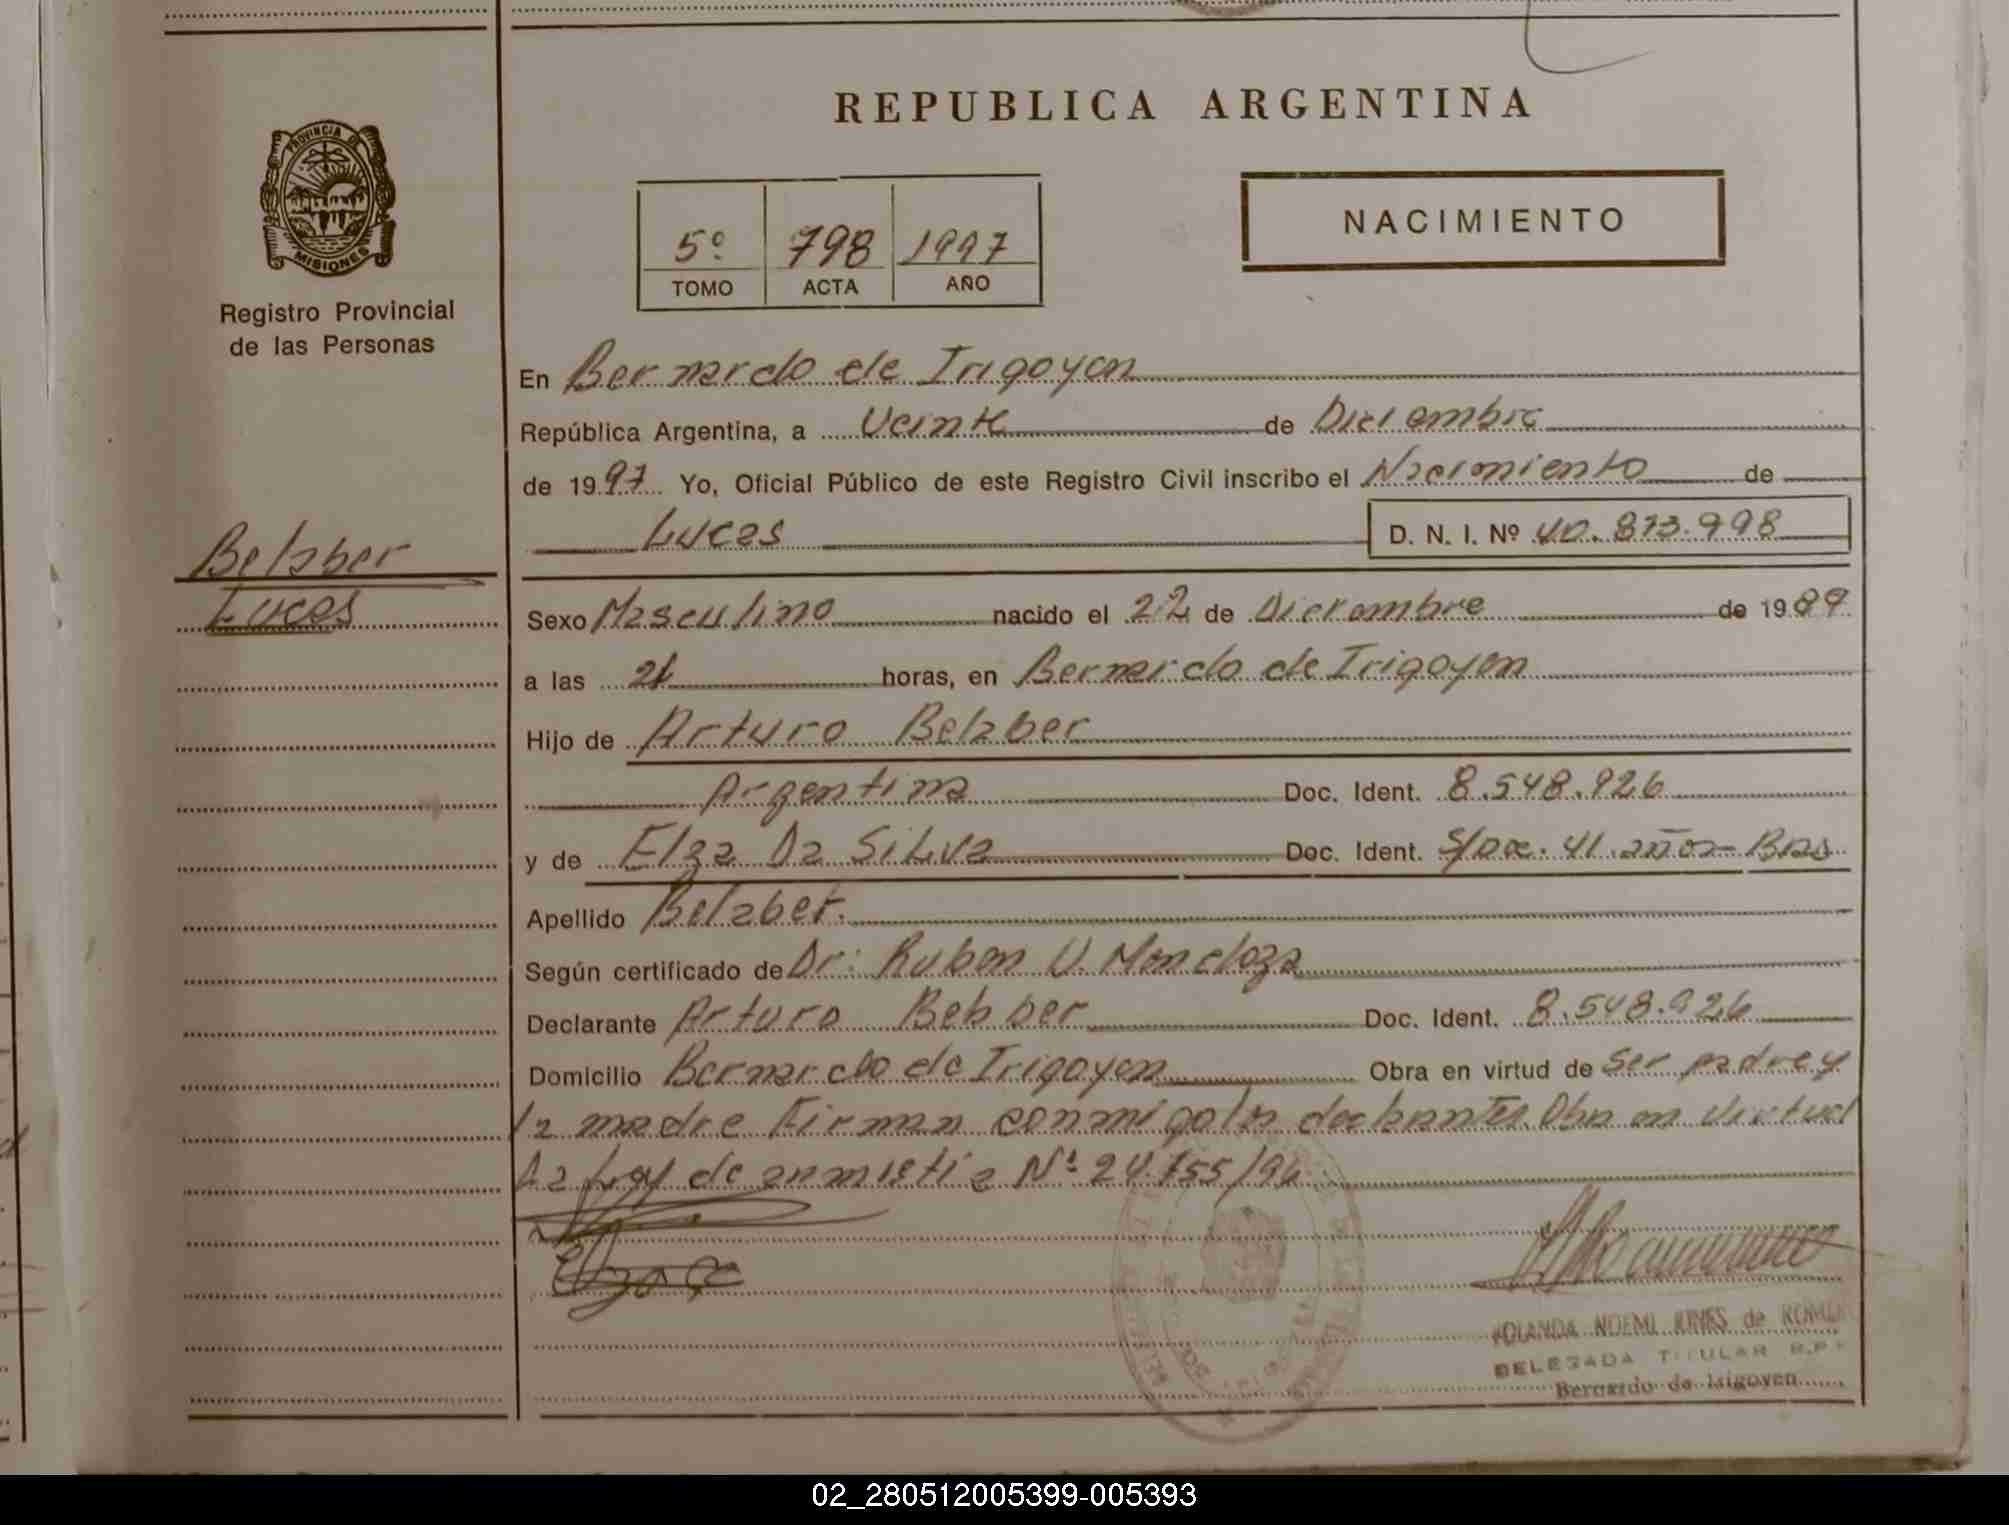 REPUBLICA ARGENTINA
PROVINCIA DE
MISIONES
Registro Provincial
de las Personas
5º 798 1997
TOMO ACTA AÑO
NACIMIENTO
En Bernardo de Irigoyen
República Argentina, a Veinte de Diciembre
de 1997 Yo, Oficial Público de este Registro Civil inscribo el Nacimiento de
Lucas D. N. I. Nº 40.873.998
Belzber
Lucas
Sexo Masculino nacido el 22 de Diciembre de 1989
a las 21 horas, en Bernardo de Irigoyen
Hijo de Arturo Belzber
Argentina Doc. Ident. 8.548.926
y de Elza Da Silva Doc. Ident. S/Doc. 41 años Bras
Apellido Belzber.
Según certificado de Dr: Ruben V. Mendoza
Declarante Arturo Belzber Doc. Ident. 8.548.926
Domicilio Bernardo de Irigoyen Obra en virtud de Ser padre y
la madre Firman conmigo los declarantes. Obra en virtud
La Ley de anmistia Nº 24.755/96
YOLANDA NOEMI de
DELEGADA TITULAR R.P.
Bernardo de Irigoyen
02_280512005399-005393